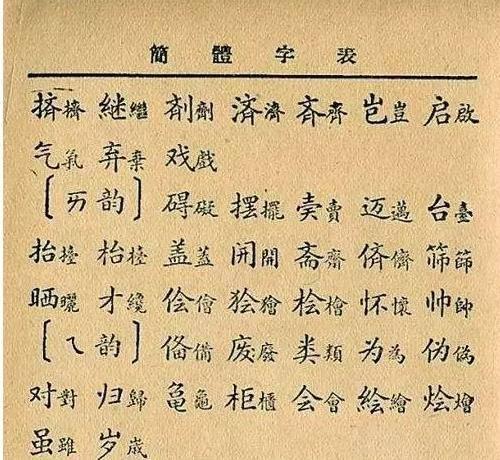 簡體字表
挤擠 継繼 剤劑 済濟 斉齊 岂豈 启啟
气氣 弃棄 戏戲
[ㄞ韵] 碍礙 摆擺 卖賣 迈邁 台臺
抬擡 枱檯 盖蓋 开開 斋齋 侪儕 筛篩
晒曬 才纔 侩儈 狯獪 桧檜 怀懷 帅帥
[ㄟ韵] 俻備 废廢 类類 为為 伪偽
对對 归歸 亀龜 柜櫃 会會 絵繪 烩燴
虽雖 岁歲